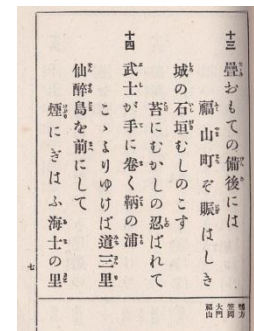 十三 疊おもての備後には
福山町ぞ賑はしき
城の石垣むしのこす
苔にむかしの忍ばれて
十四 武士が手に巻く鞆の浦
こゝよりゆけば道三里
仙醉島を前にして
煙にぎはふ海士の里
鴨方
笠岡
大門
福山
七